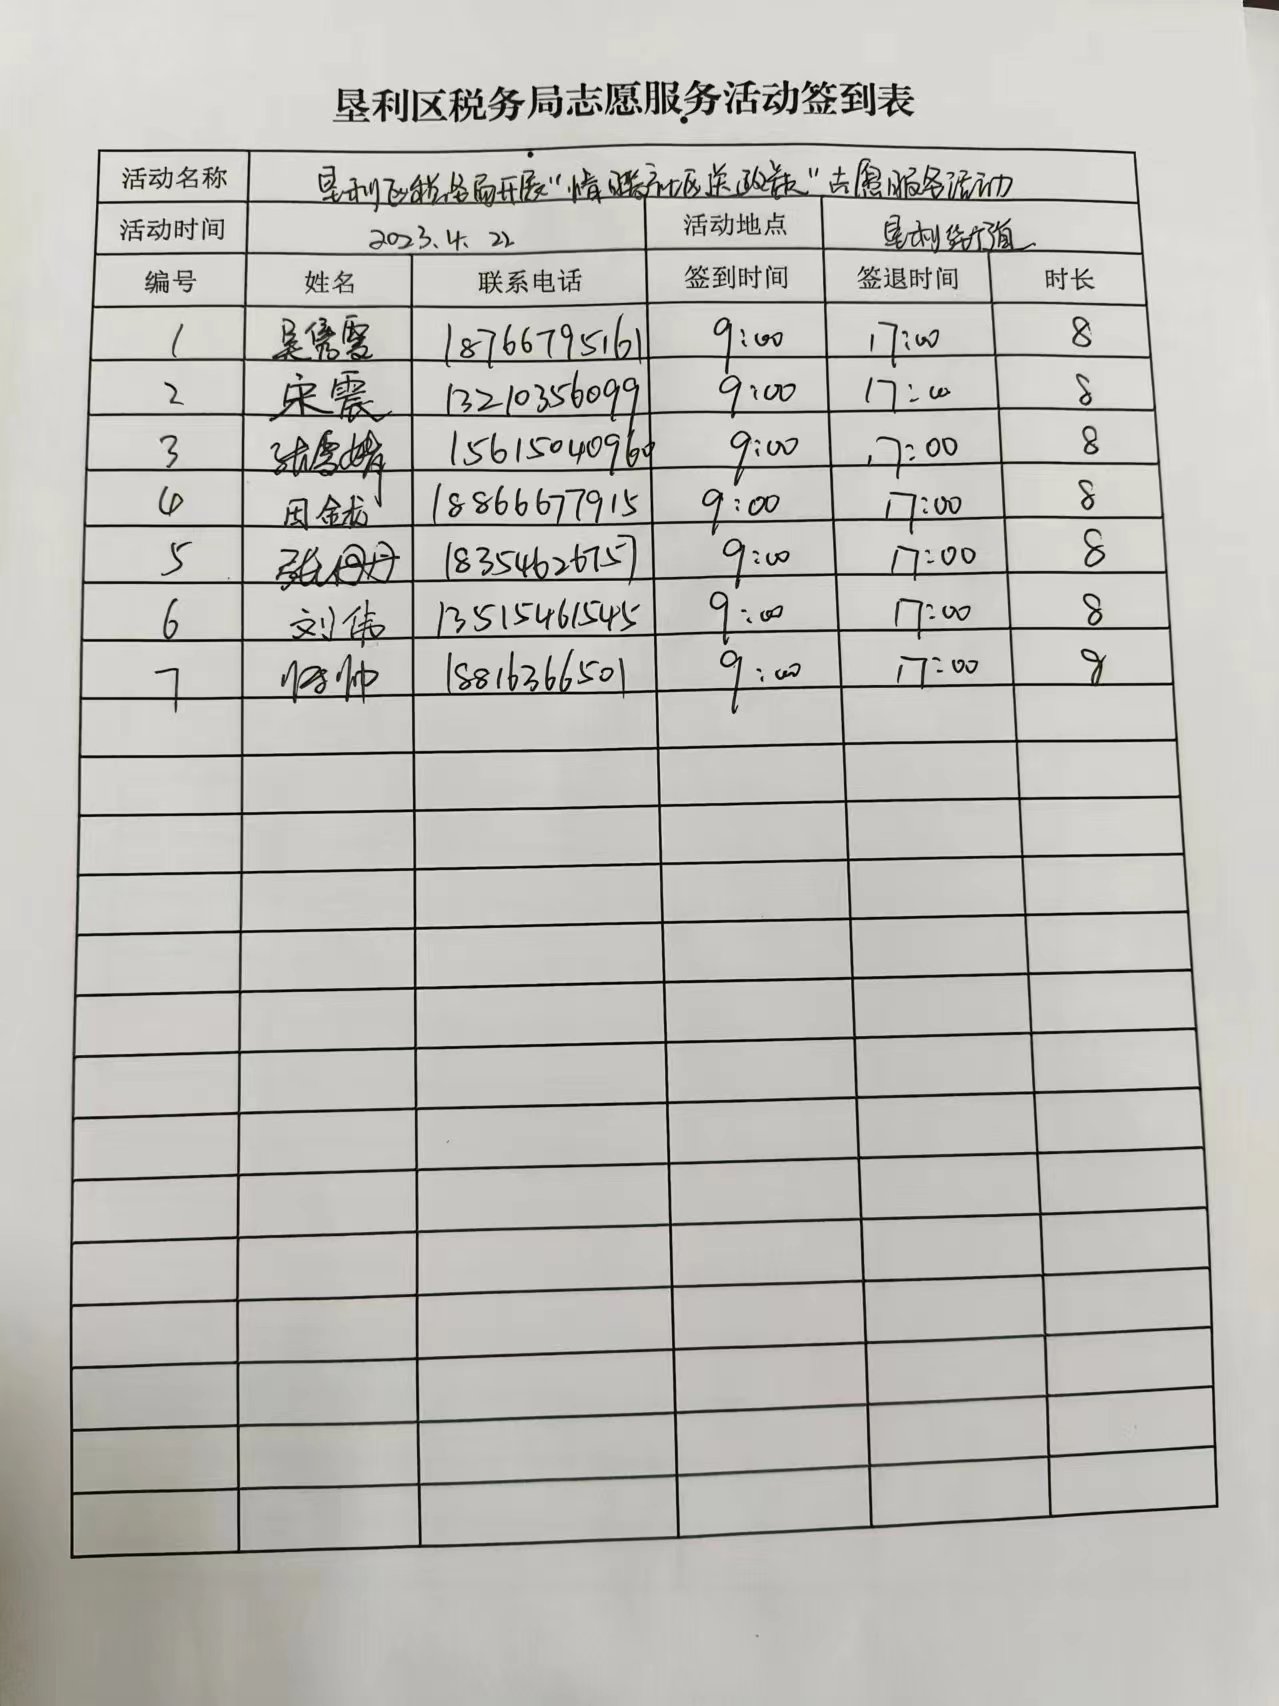 垦利区税务局志愿服务活动签到表
活动名称 垦利区税务局开展“情联社区送政策”志愿服务活动
活动时间 2023.4.22 活动地点 垦利街道
编号 姓名 联系电话 签到时间 签退时间 时长
1 18766795161 9:00 17:00 8
2 宋震 13210356099 9:00 17:00 8
3 张雪婧 15615040960 9:00 17:00 8
4 周金龙 18866677915 9:00 17:00 8
5 张丹丹 18354626757 9:00 17:00 8
6 刘伟 13515461545 9:00 17:00 8
7 18816366501 9:00 17:00 8